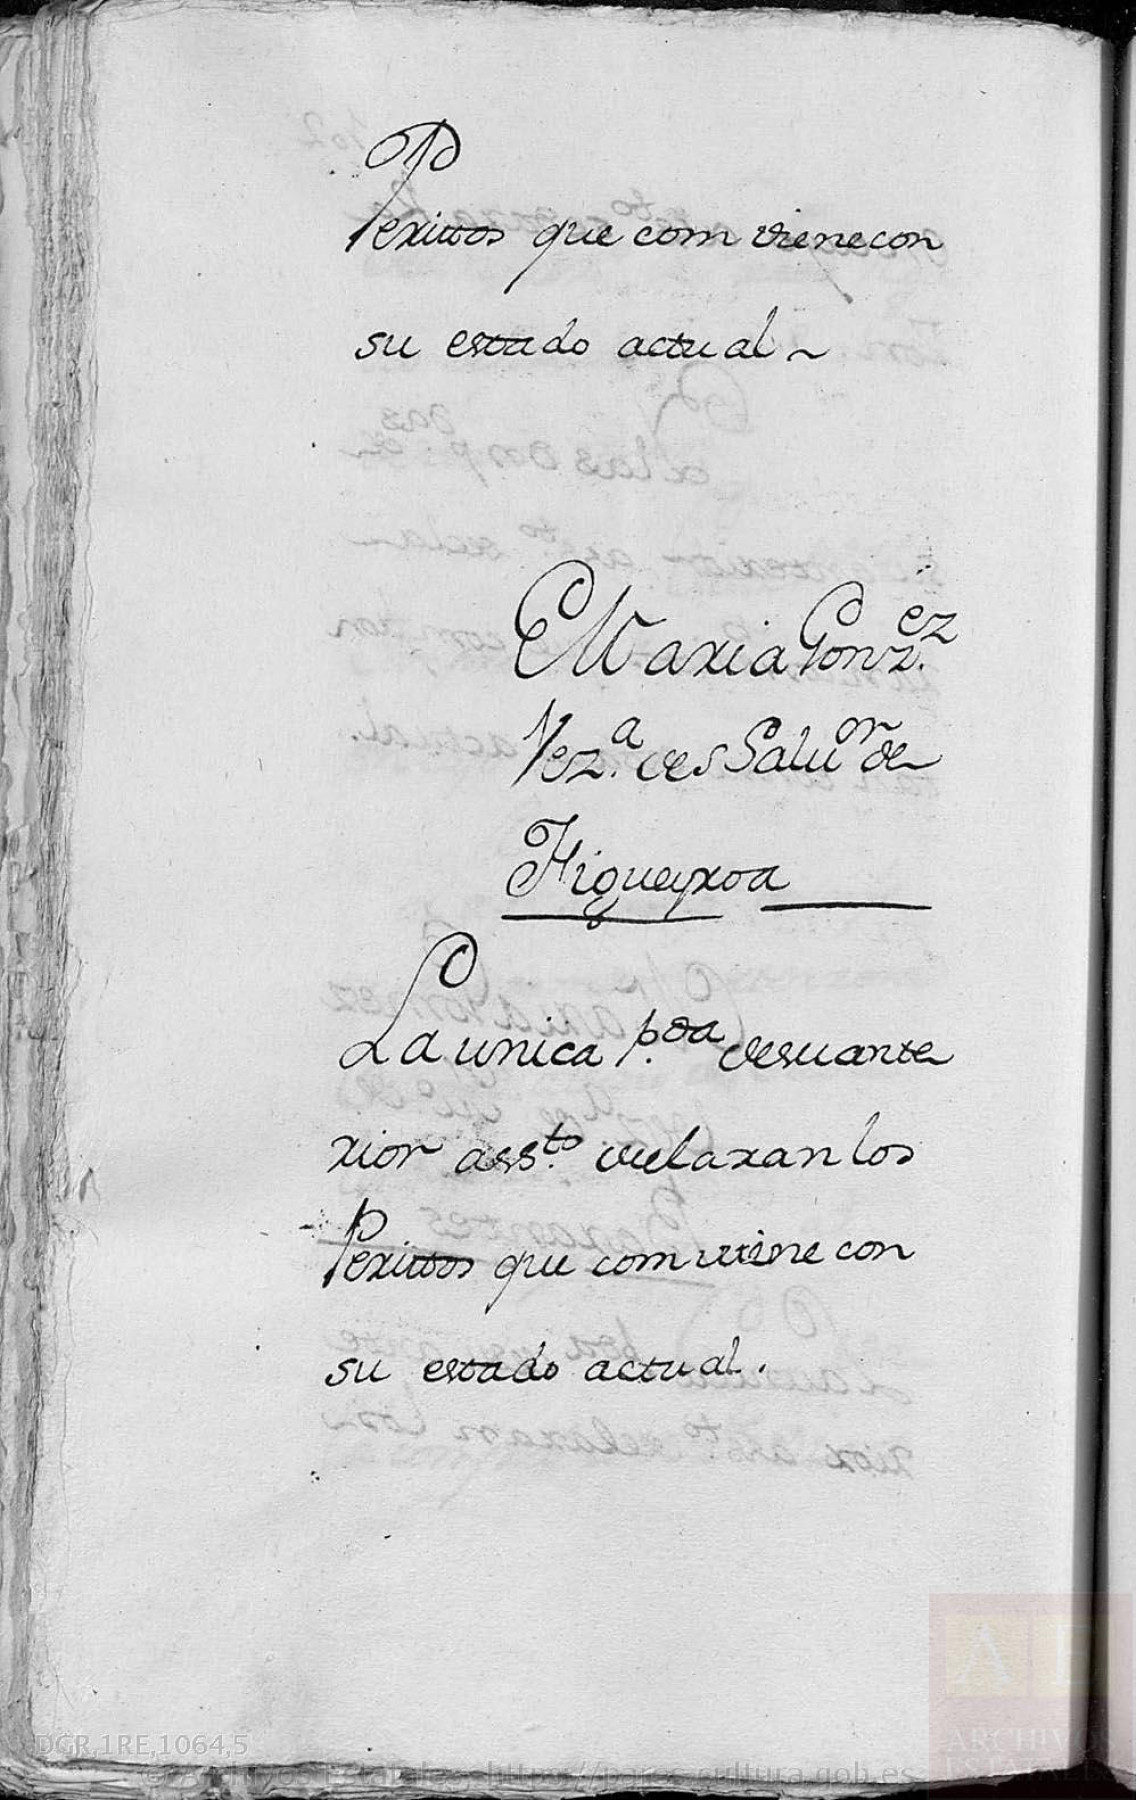 Peritos que combiene con
su estado actual ~
Maria Gonz.ez
Vez.a de S Salu.or de
Figueyroa
La unica p.da de su ante
rior ass.to declaran los
Peritos que combiene con
su estado actual.
DGR,1RE,1064,5
© Archivos Estatales, https://pares.cultura.gob.es
AE
ARCHIVOS
ESTATALES